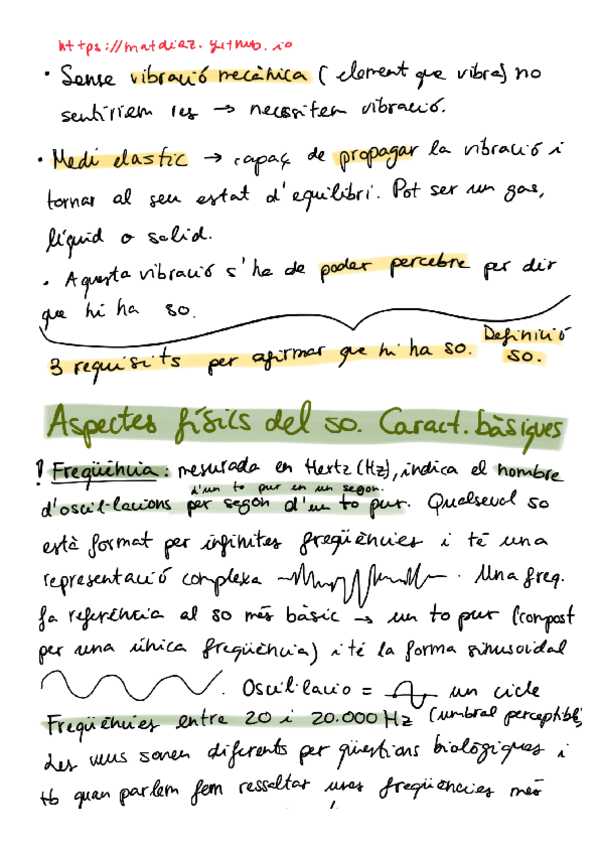 https://matdiaz.github.io
· Sense vibració mecànica (element que vibra) no
sentiríem res → necessitem vibració.
· Medi elastic → capaç de propagar la vibració i
tornar al seu estat d'equilibri. Pot ser un gas,
líquid o solid.
· Aquesta vibració s'ha de poder percebre per dir
que hi ha so.
3 requisits per afirmar que hi ha so. Definició
so.
Aspectes físics del so. Caract. bàsiques
Freqüència: mesurada en Hertz (Hz), indica el nombre
d'un to pur en un segon.
d'oscil·lacions per segon d'un to pur. Qualsevol so
està format per infinites freqüències i té una
representació complexa . Una freq.
fa referència al so més bàsic → un to pur (compost
per una única freqüència) i té la forma sinusoidal
. Oscil·lacio = un cicle
Freqüències entre 20 i 20.000 Hz (umbral perceptible)
Les veus sonen diferents per qüestions biològiques i
tb quan parlem fem ressaltar unes freqüencies més